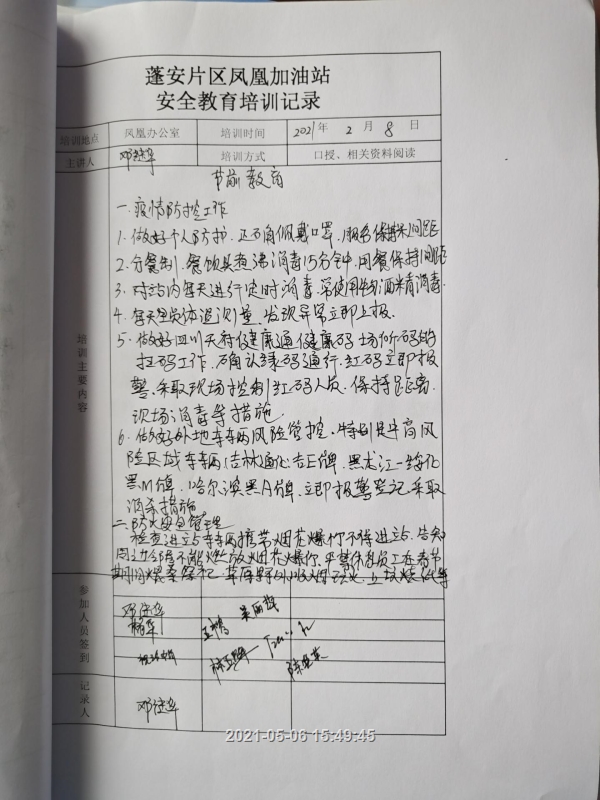 蓬安片区凤凰加油站
安全教育培训记录
培训地点 凤凰办公室 培训时间 2021年 2月 8日
主讲人 培训方式 口授、相关资料阅读
培训主要内容
节前教育
一.疫情防控工作
1.做好个人防护,正确佩戴口罩,服务保持1米间距
2.分餐制,餐饮具煮沸消毒15分钟,用餐保持间距
3.对站内每天进行定时消毒,常使用酒精消毒
4.每天量体温测量,发现异常立即上报.
5.做好四川天府健康通健康码场所码的
扫码工作,确认绿码通行,红码立即报
警,采取现场控制红码人员.保持距离
现场消毒等措施.
6.做好外地车辆风险管控.特别是中高风
险区域车辆(吉林通化吉E牌,黑龙江
黑M牌,哈尔滨黑A牌,立即报警登记采取
消杀措施
二.防火安全管理
检查进站车辆携带烟花爆竹不得进站.告知
周边邻居不能燃放烟花爆竹,严禁休假员工在春节
期间
参加人员签到
记录人
2021-05-06 15:49:45